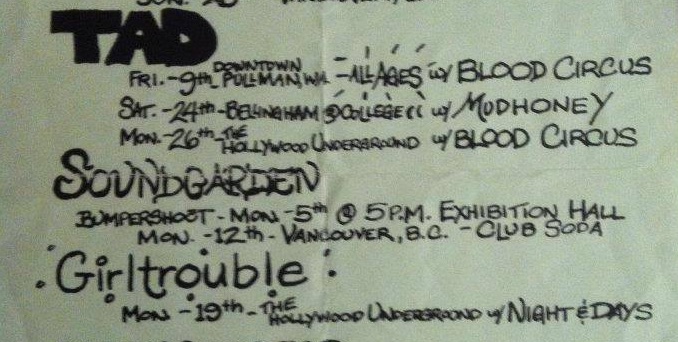 TAD
FRI.-9th DOWNTOWN PULLMAN, WA. -ALL AGES w/ BLOOD CIRCUS
SAT. -24th-BELLINGHAM @ COLLEGE w/ MUDHONEY
MON.-26th-THE HOLLYWOOD UNDERGROUND w/ BLOOD CIRCUS
SOUNDGARDEN
BUMPERSHOOT - MON -5th @ 5 P.M. EXHIBITION HALL
MON. -12th - VANCOUVER, B.C. - CLUB SODA
Girltrouble
MON -19th - THE HOLLYWOOD UNDERGROUND w/ NIGHT & DAYS